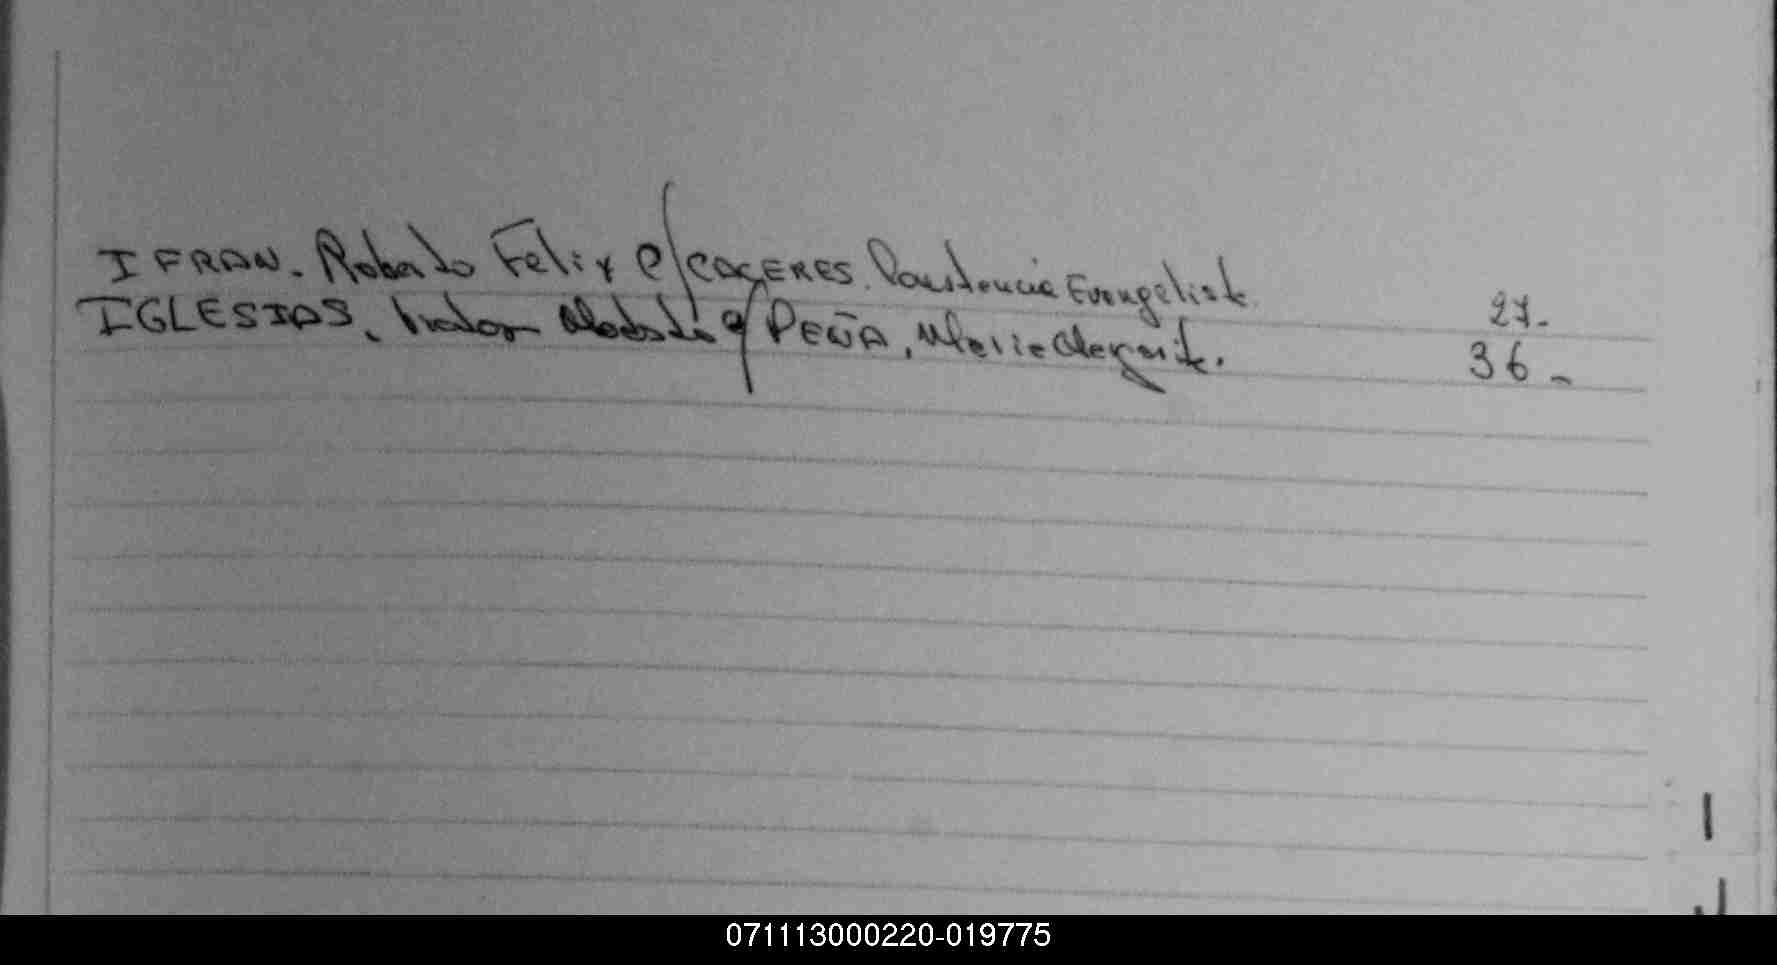 IFRAN. Roberto Felix c/ CACERES. Constancia Evangelista 27-
IGLESIAS, Modesto c/ PEÑA, Maria Margarita. 36-
I
J
071113000220-019775